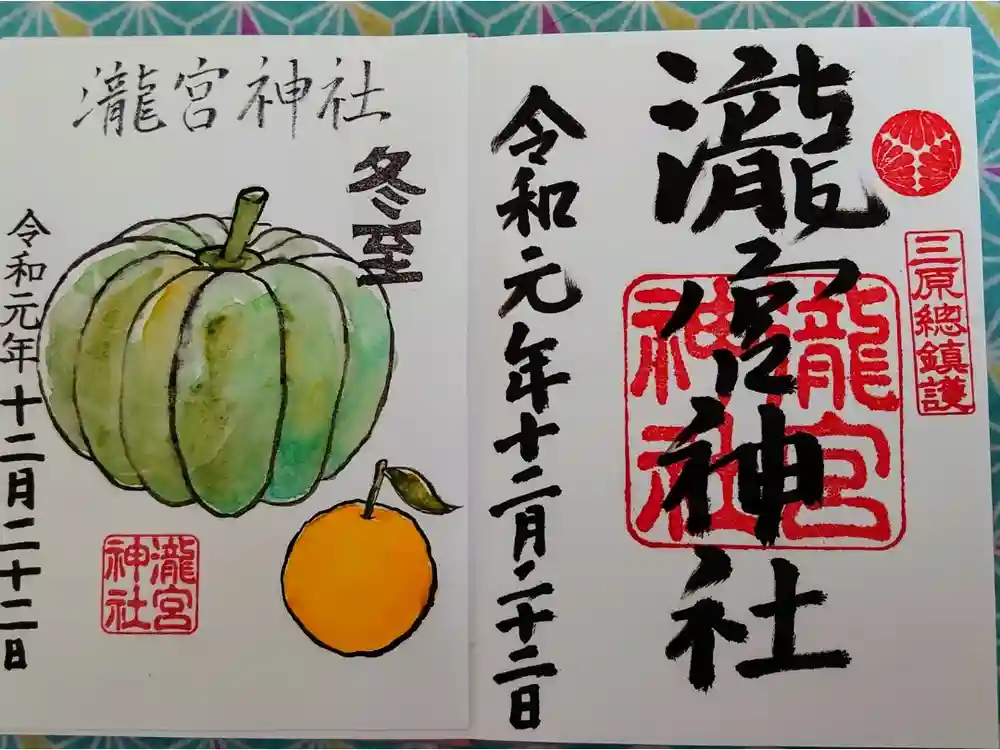 瀧宮神社
冬至
令和元年十二月二十二日
瀧宮神社
三原總鎮護
瀧宮神社
瀧宮神社
令和元年十二月二十二日